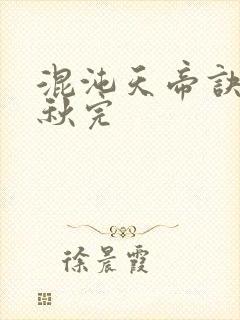 混沌天帝诀
秋完
徐晨霞